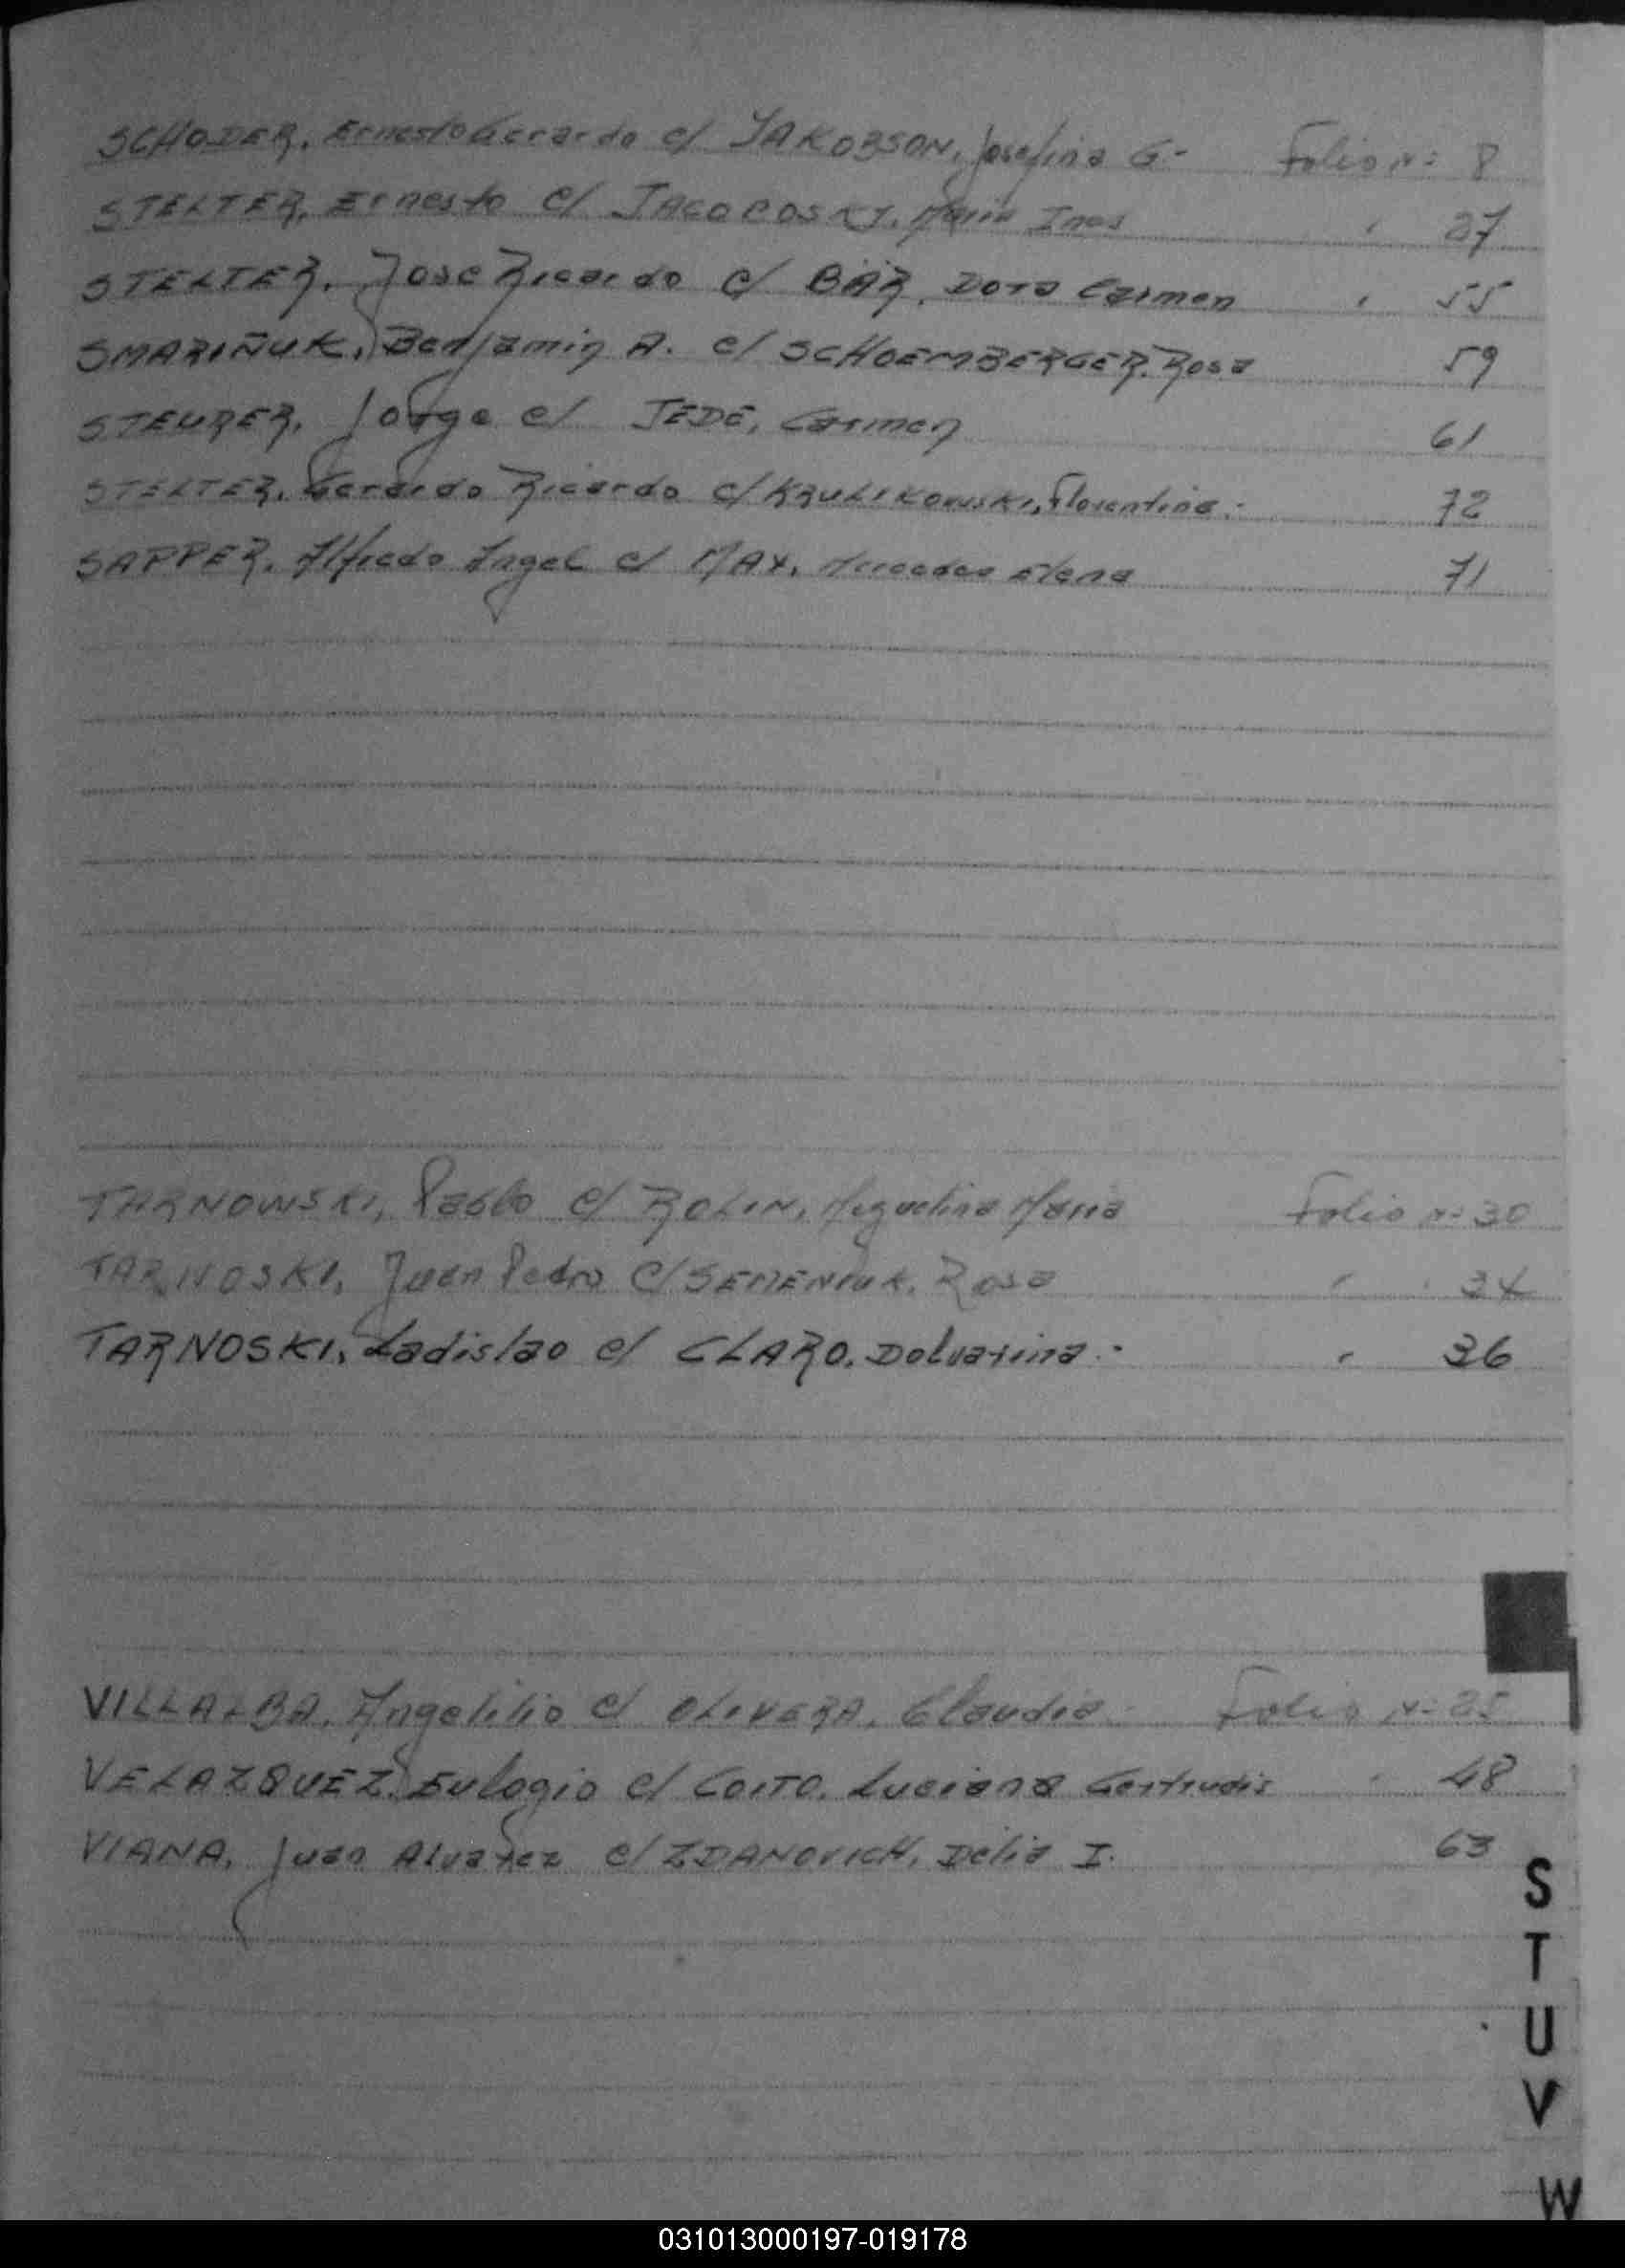 SCHODER, Ernesto Gerardo c/ JAKOBSON, Josefina G.- Folio Nº 8
STELTER, Ernesto c/ JACOBOSKI, Maria Ines " 27
STELTER, Jose Ricardo c/ BÄR, Dora Carmen " 55
SMARIÑUK, Benjamin A. c/ SCHOEMBERGER, Rosa 59
STEURER, Jorge c/ JEDE, Carmen 61
STELTER, Gerardo Ricardo c/ KRULIKOWSKI, Florentina.- 72
SAPPER, Alfredo Angel c/ MAX, Mercedes Elena 71
TARNOWSKI, Pablo c/ ROLIN, Miguelina Maria Folio Nº 30
TARNOSKI, Juan Pedro c/ SEMENIUK, Rosa " " 34
TARNOSKI, Ladislao c/ CLARO, Dolvarina.- " 36
VILLALBA, Angelilio c/ OLIVERA, Claudia Folio Nº 25
VELAZQUEZ, Eulogio c/ COITO, Luciana Gertrudis " 48
VIANA, Juan Alvarez c/ ZDANOVICH, Delia I. 63
S
T
U
V
W
031013000197-019178